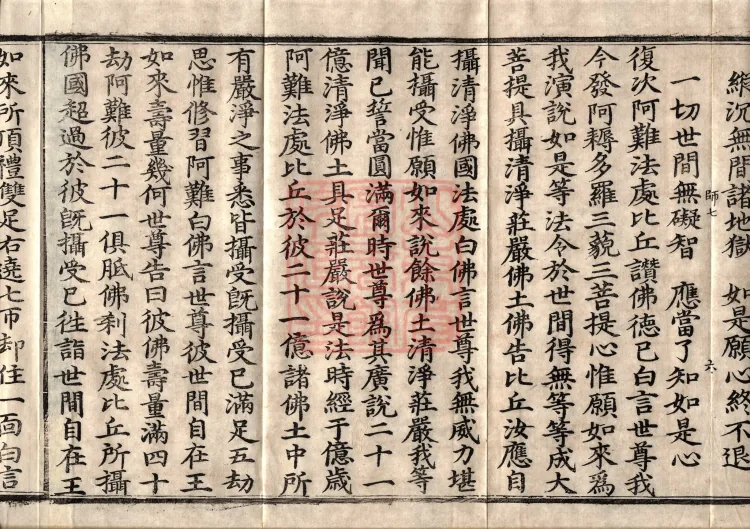 縱沉無間諸地獄　如是願心終不退
師七
六
一切世間無礙智　應當了知如是心
復次阿難法處比丘讚佛德已白言世尊我
今發阿耨多羅三藐三菩提心惟願如來爲
我演說如是等法令於世間得無等等成大
菩提具攝清淨莊嚴佛土佛告比丘汝應自
攝清淨佛國法處白佛言世尊我無威力堪
能攝受惟願如來說餘佛土清淨莊嚴我等
聞已誓當圓滿爾時世尊爲其廣說二十一
億清淨佛土具足莊嚴說是法時經于億歲
阿難法處比丘於彼二十一億諸佛土中所
有嚴淨之事悉皆攝受旣攝受已滿足五劫
思惟修習阿難白佛言世尊彼世間自在王
如來壽量幾何世尊告曰彼佛壽量滿四十
劫阿難彼二十一俱胝佛刹法處比丘所攝
佛國超過於彼旣攝受已徃詣世間自在王
如來所頂禮雙足右遶七帀却住一面白言